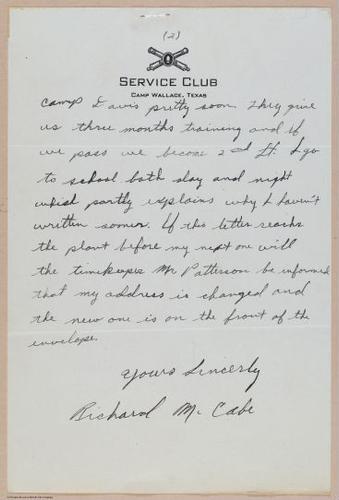 (2)
SERVICE CLUB
CAMP WALLACE, TEXAS
Camp Davis pretty soon. They give
us three months training and if
we pass we become 2nd Lt. I go
to school both day and night
which partly explains why I haven't
written sooner. If this letter reachs
the plant before my next one will
the timekeeper Mr Patterson be informed
that my address is changed and
the new one is on the front of the
envelope.
Yours Sincerly
Richard McCabe